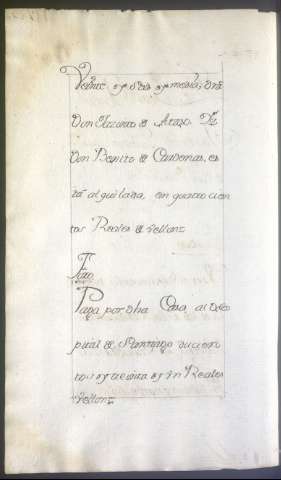 Veinte y dos y media, de
Don Lazaro de
Don Benito de Cardenas, es
ta alquilada, en quatrocien
tos Reales de vellon:
Paga por dha Casa, al Hos
pital de Santiago ducien
tos y treinta y un Reales
vellon: